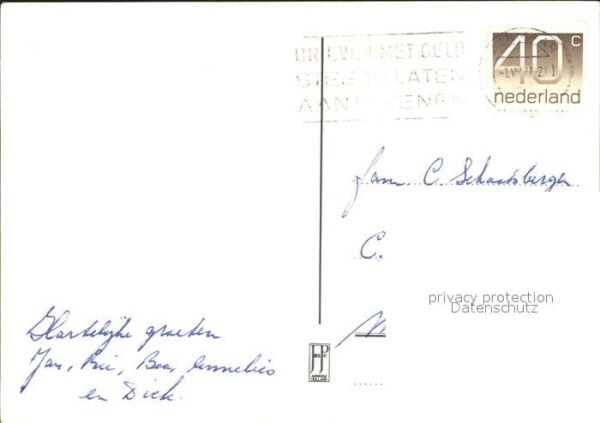 BRIEVEN MET GELD
STEEDS LATEN
AANTEKENEN
40 c
nederland
Fam. C. Schaatsbergen
C.
privacy protection
Datenschutz
Hartelijke groeten
Jan, Rui, Bea, Annelies
en Dick.
JP